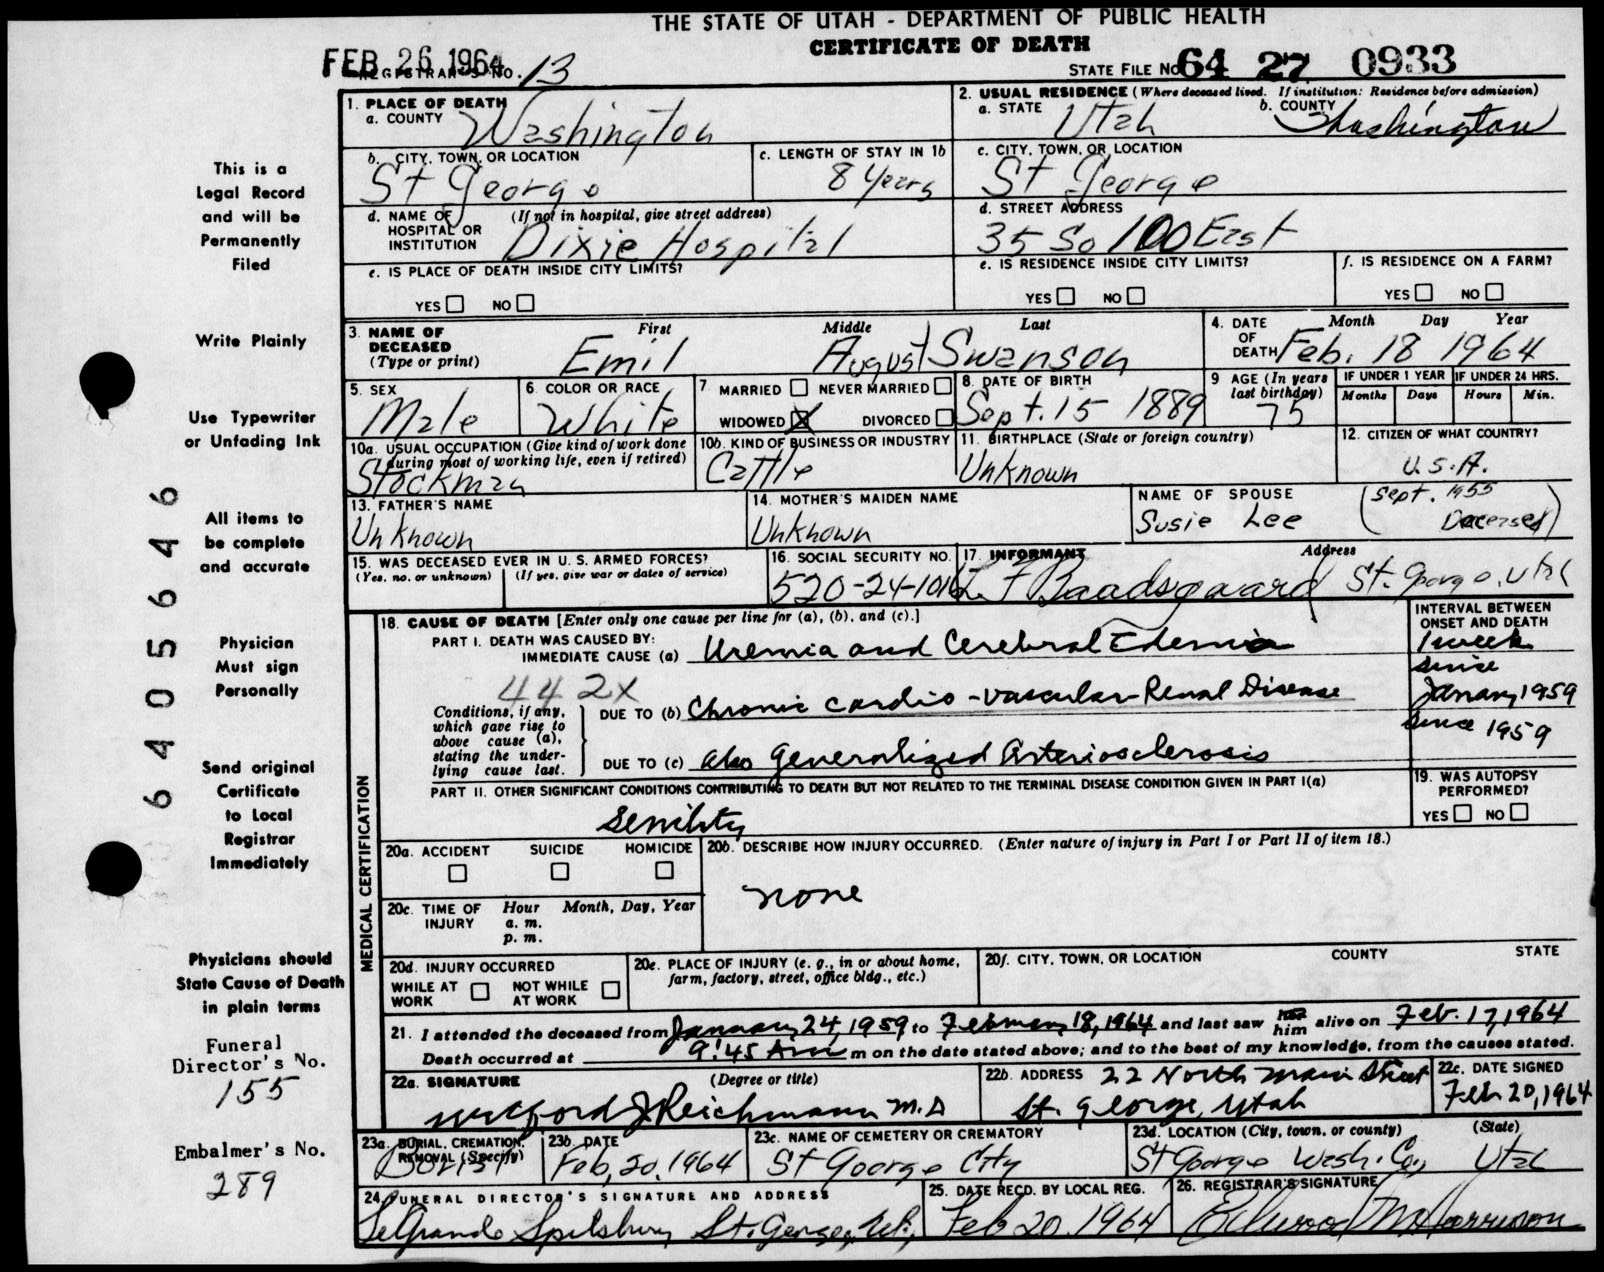 THE STATE OF UTAH - DEPARTMENT OF PUBLIC HEALTH
CERTIFICATE OF DEATH
FEB 26 1964
REGISTRAR'S NO. 13
STATE FILE NO. 64 27 0933
1. PLACE OF DEATH
a. COUNTY Washington
2. USUAL RESIDENCE (Where deceased lived. If institution: Residence before admission)
a. STATE Utah b. COUNTY Washington
b. CITY, TOWN, OR LOCATION St George
c. LENGTH OF STAY IN 1b 8 Years
c. CITY, TOWN, OR LOCATION St George
d. NAME OF HOSPITAL OR INSTITUTION (If not in hospital, give street address) Dixie Hospital
d. STREET ADDRESS 35 So 100 East
e. IS PLACE OF DEATH INSIDE CITY LIMITS?
YES NO
e. IS RESIDENCE INSIDE CITY LIMITS?
YES NO
f. IS RESIDENCE ON A FARM?
YES NO
3. NAME OF DECEASED (Type or print)
First Middle Last
Emil August Swanson
4. DATE OF DEATH Month Day Year
Feb. 18 1964
5. SEX Male
6. COLOR OR RACE White
7. MARRIED NEVER MARRIED
WIDOWED X DIVORCED
8. DATE OF BIRTH Sept. 15 1889
9 AGE (In years last birthday) 75
IF UNDER 1 YEAR Months Days
IF UNDER 24 HRS. Hours Min.
10a. USUAL OCCUPATION (Give kind of work done during most of working life, even if retired) Stockman
10b. KIND OF BUSINESS OR INDUSTRY Cattle
11. BIRTHPLACE (State or foreign country) Unknown
12. CITIZEN OF WHAT COUNTRY? U.S.A.
13. FATHER'S NAME Unknown
14. MOTHER'S MAIDEN NAME Unknown
NAME OF SPOUSE Susie Lee (Sept. 1955 Deceased)
15. WAS DECEASED EVER IN U. S. ARMED FORCES?
(Yes, no, or unknown) (If yes, give war or dates of service)
16. SOCIAL SECURITY NO. 520-24-1016
17. INFORMANT Address
L. F Baadsgaard St. George, Utah
18. CAUSE OF DEATH [Enter only one cause per line for (a), (b), and (c).]
INTERVAL BETWEEN ONSET AND DEATH
PART I. DEATH WAS CAUSED BY:
IMMEDIATE CAUSE (a) Uremia and Cerebral Edemia 1 week
442X
Conditions, if any, which gave rise to above cause (a), stating the underlying cause last.
DUE TO (b) Chronic cardio-vascular-Renal Disease since January 1959
DUE TO (c) also Generalized Arteriosclerosis since 1959
PART II. OTHER SIGNIFICANT CONDITIONS CONTRIBUTING TO DEATH BUT NOT RELATED TO THE TERMINAL DISEASE CONDITION GIVEN IN PART I(a)
Senility
19. WAS AUTOPSY PERFORMED?
YES NO
MEDICAL CERTIFICATION
20a. ACCIDENT SUICIDE HOMICIDE
20b. DESCRIBE HOW INJURY OCCURRED. (Enter nature of injury in Part I or Part II of item 18.)
none
20c. TIME OF INJURY Hour Month, Day, Year
a. m.
p. m.
20d. INJURY OCCURRED
WHILE AT WORK NOT WHILE AT WORK
20e. PLACE OF INJURY (e. g., in or about home, farm, factory, street, office bldg., etc.)
20f. CITY, TOWN, OR LOCATION COUNTY STATE
21. I attended the deceased from January 24, 1959 to February 18, 1964 and last saw her him alive on Feb. 17, 1964
Death occurred at 9:45 Am m on the date stated above; and to the best of my knowledge, from the causes stated.
22a. SIGNATURE (Degree or title)
Wilford J Reichmann M.D
22b. ADDRESS 22 North Main Street
St. George, Utah
22c. DATE SIGNED
Feb 20, 1964
23a. BURIAL, CREMATION, REMOVAL (Specify) Burial
23b. DATE Feb, 20, 1964
23c. NAME OF CEMETERY OR CREMATORY St George City
23d. LOCATION (City, town, or county) (State)
St George Wash. Co., Utah
24. FUNERAL DIRECTOR'S SIGNATURE AND ADDRESS
LeGrande Spilsbury St. George, Ut.
25. DATE RECD. BY LOCAL REG. Feb 20, 1964
26. REGISTRAR'S SIGNATURE
This is a
Legal Record
and will be
Permanently
Filed
Write Plainly
Use Typewriter
or Unfading Ink
All items to
be complete
and accurate
Physician
Must sign
Personally
Send original
Certificate
to Local
Registrar
Immediately
Physicians should
State Cause of Death
in plain terms
Funeral
Director's No.
155
Embalmer's No.
289
64056446